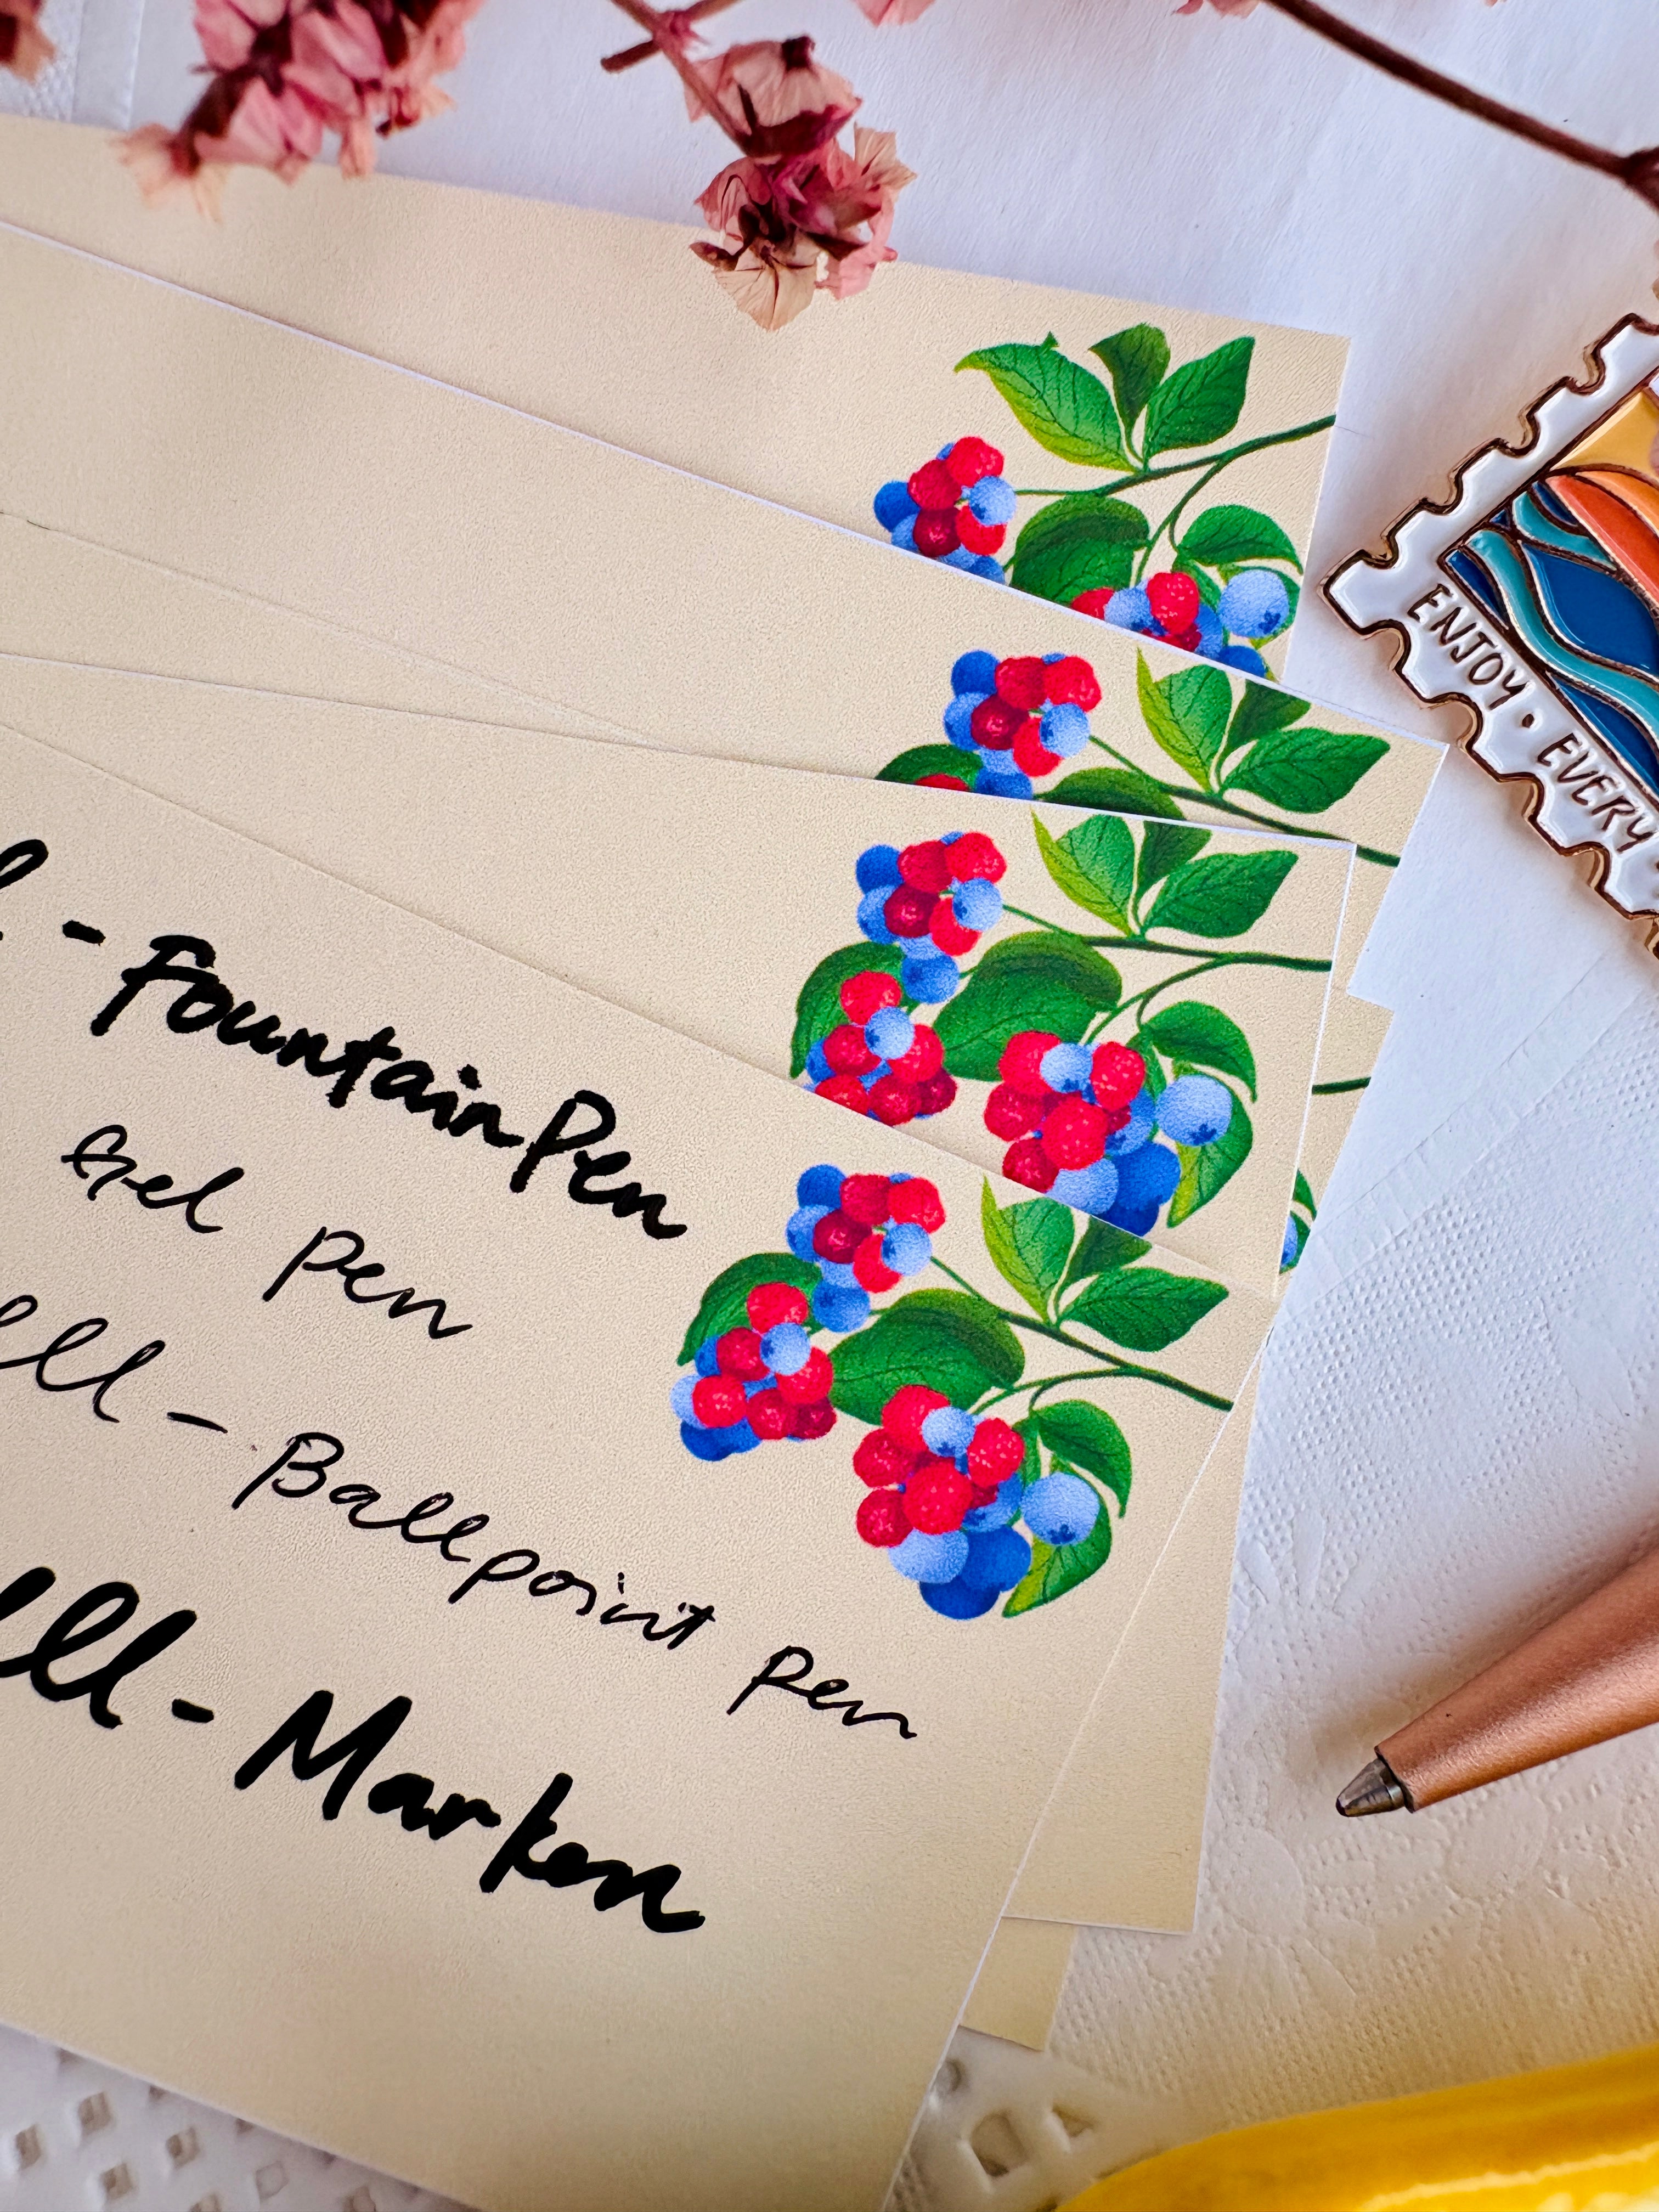 - Fountain Pen
Gel pen
ell - Ballpoint pen
ell - Marker
ENJOY • EVERY